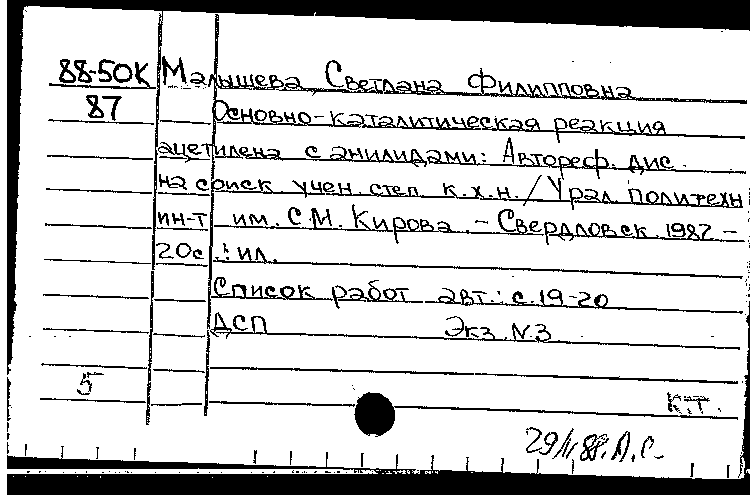 88-50К Малышева Светлана Филипповна
87 Основно-каталитическая реакция
ацетилена с анилидами: Автореф. дис.
на соиск. учен. степ. к.х.н. / Урал. политехн.
ин-т им. С.М. Кирова. - Свердловск. 1987 -
20с.: ил.
Список работ авт.: с. 19-20
ДСП Экз. N3
5
К.Т.